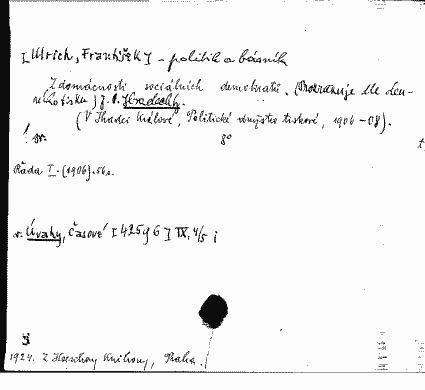 [Ulrich, František] - politik a básník
Z domácnosti sociálních demokratů. (Pozoruje dle den-
ního tisku) J. E. Hradecký.
(V Hradci Králové, Politické družstvo tiskové, 1906-08).
8°
Řada I. (1906). 56 s.
v. Úvahy, časové [42596] IX, 4/5 i
1924. Z Knihovny, Praha.